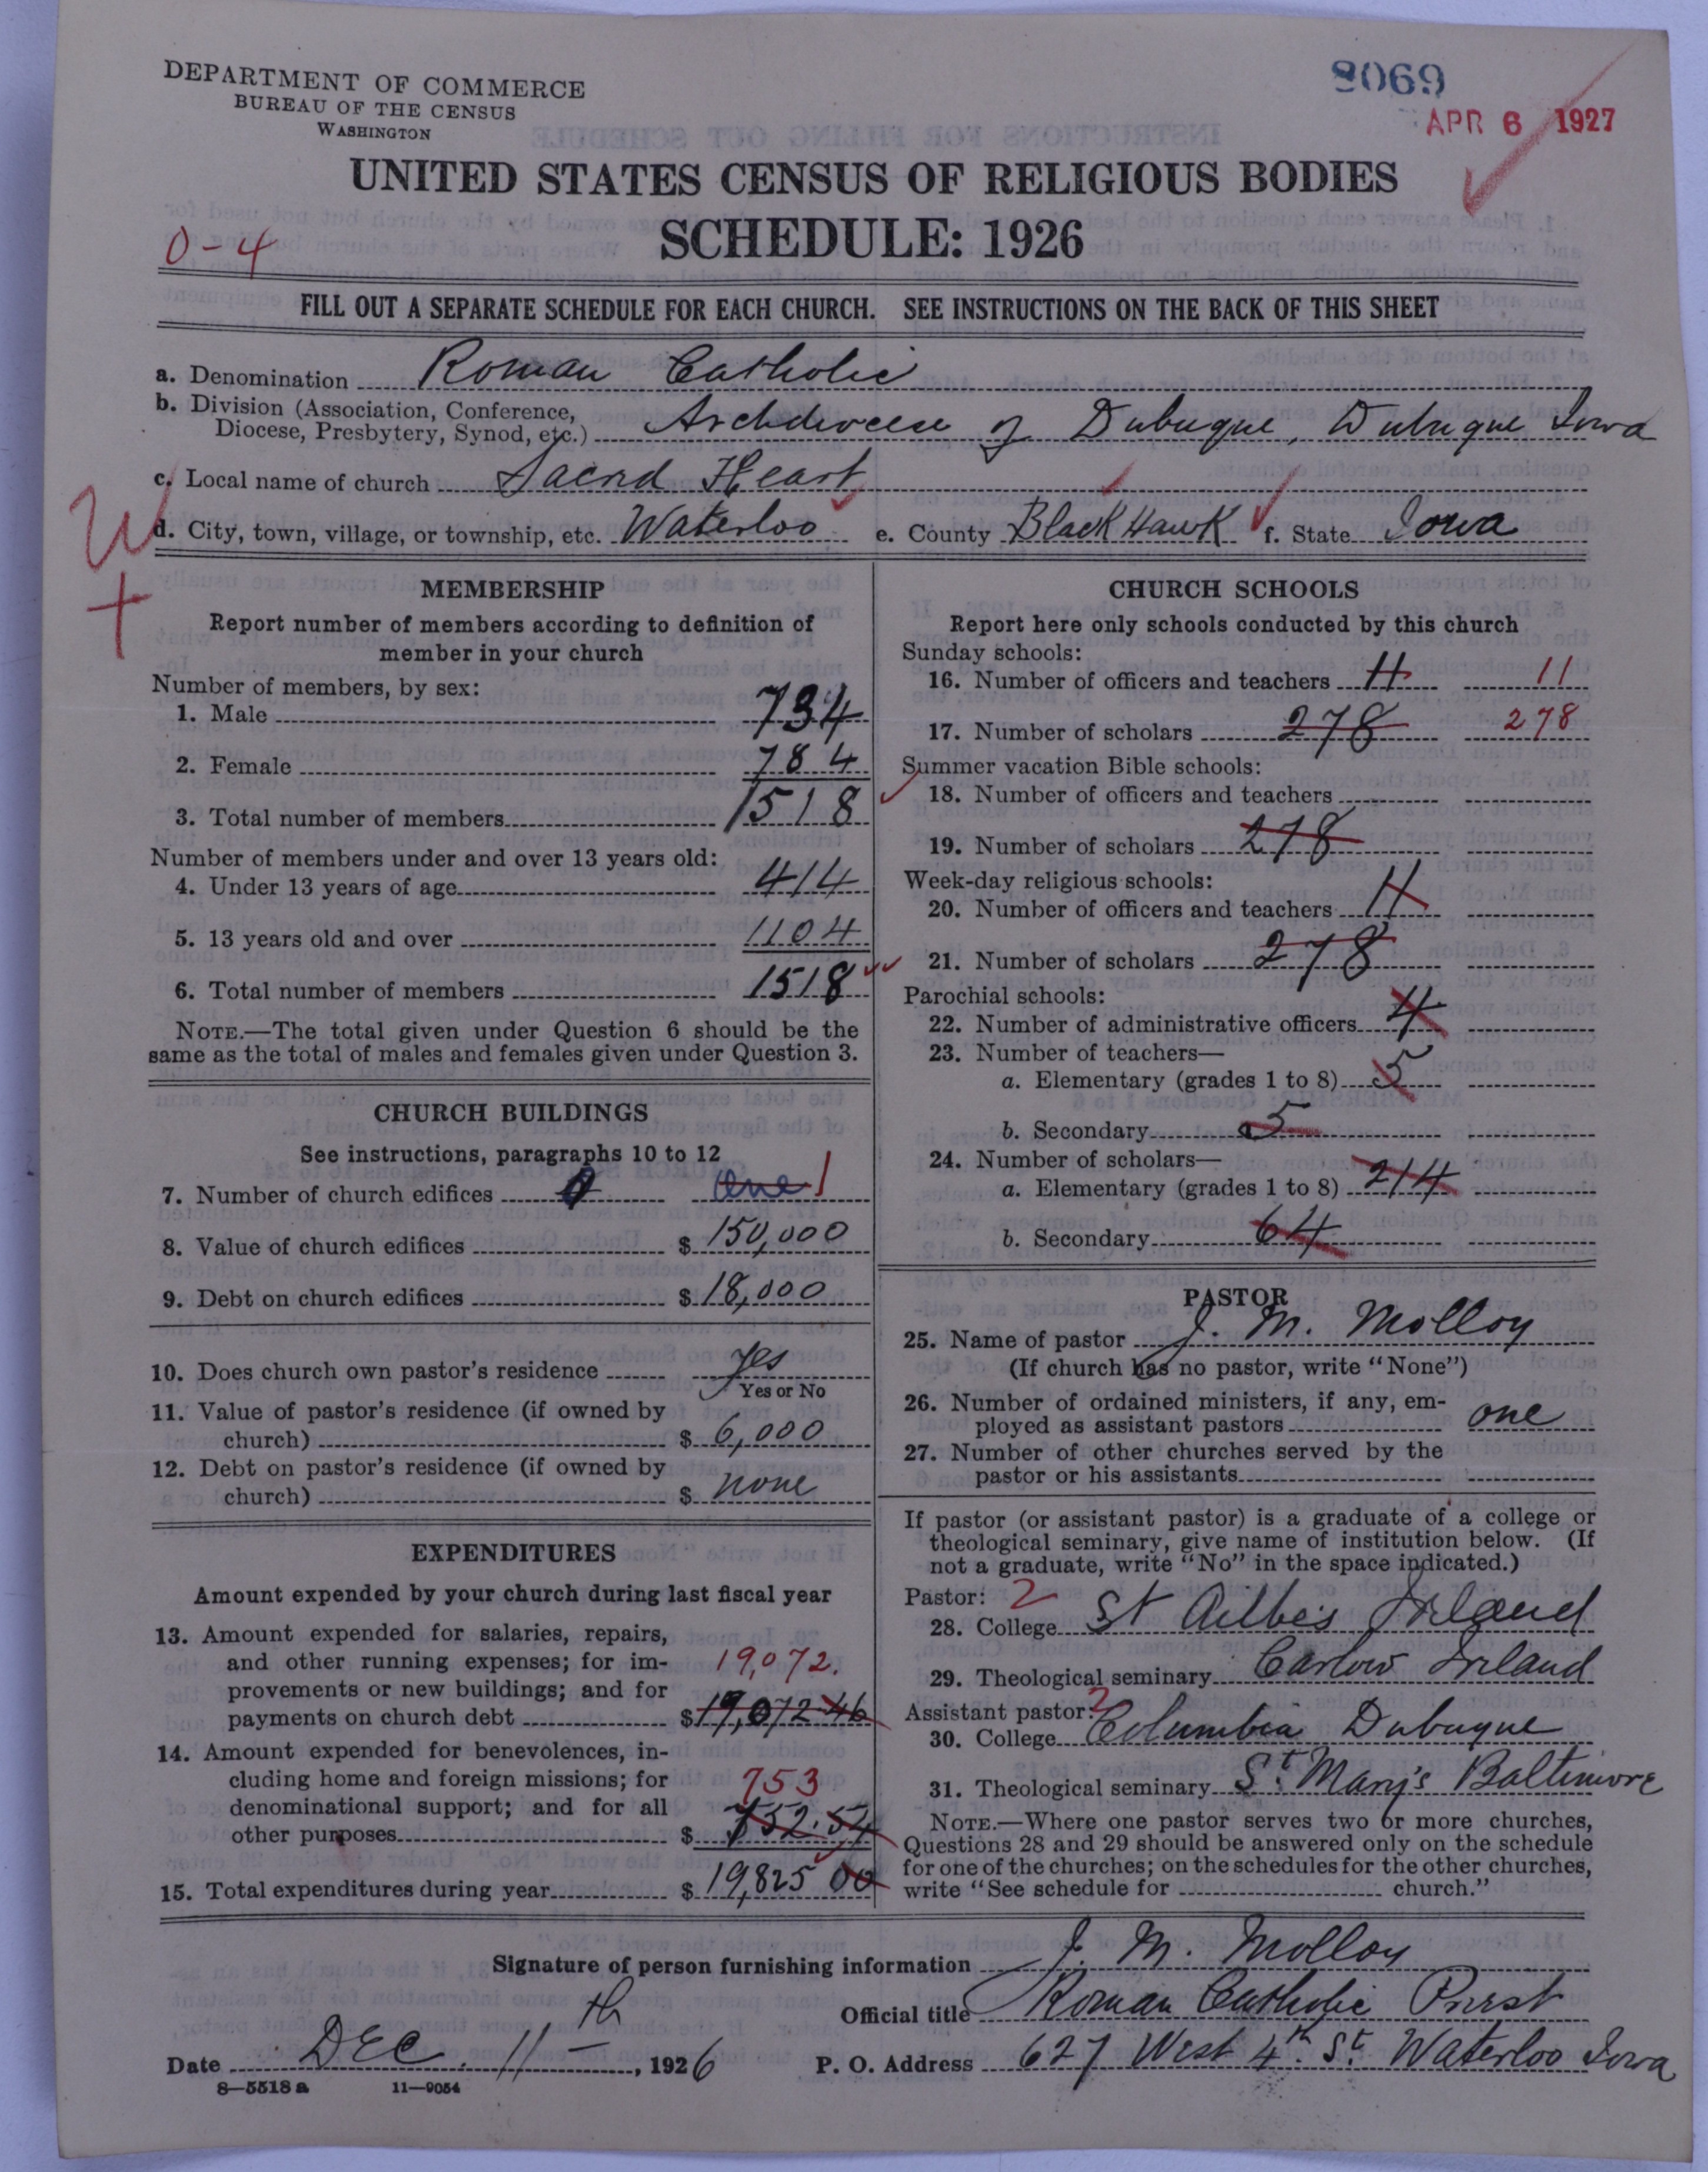 DEPARTMENT OF COMMERCE
BUREAU OF THE CENSUS
WASHINGTON
8069
APR 6 1927
UNITED STATES CENSUS OF RELIGIOUS BODIES
SCHEDULE: 1926
0-4
FILL OUT A SEPARATE SCHEDULE FOR EACH CHURCH. SEE INSTRUCTIONS ON THE BACK OF THIS SHEET
a. Denomination Roman Catholic
b. Division (Association, Conference,
Diocese, Presbytery, Synod, etc.) Archdiocese of Dubuque, Dubuque Iowa
c. Local name of church Sacred Heart
d. City, town, village, or township, etc. Waterloo e. County Black Hawk f. State Iowa
MEMBERSHIP
Report number of members according to definition of
member in your church
Number of members, by sex:
1. Male 734
2. Female 784
3. Total number of members 1518
Number of members under and over 13 years old:
4. Under 13 years of age 414
5. 13 years old and over 1104
6. Total number of members 1518
NOTE.—The total given under Question 6 should be the
same as the total of males and females given under Question 3.
CHURCH BUILDINGS
See instructions, paragraphs 10 to 12
7. Number of church edifices one 1
8. Value of church edifices $ 150,000
9. Debt on church edifices $ 18,000
10. Does church own pastor's residence yes
Yes or No
11. Value of pastor's residence (if owned by
church) $ 6,000
12. Debt on pastor's residence (if owned by
church) $ none
EXPENDITURES
Amount expended by your church during last fiscal year
13. Amount expended for salaries, repairs,
and other running expenses; for im- 19,072.
provements or new buildings; and for
payments on church debt $ 19,072.46
14. Amount expended for benevolences, in-
cluding home and foreign missions; for 753
denominational support; and for all
other purposes $ 752.54
15. Total expenditures during year $ 19,825 00
CHURCH SCHOOLS
Report here only schools conducted by this church
Sunday schools:
16. Number of officers and teachers 11 11
17. Number of scholars 278 278
Summer vacation Bible schools:
18. Number of officers and teachers
19. Number of scholars 278
Week-day religious schools:
20. Number of officers and teachers 11
21. Number of scholars 278
Parochial schools:
22. Number of administrative officers 4
23. Number of teachers—
a. Elementary (grades 1 to 8) 5
b. Secondary 5
24. Number of scholars—
a. Elementary (grades 1 to 8) 214
b. Secondary 64
PASTOR
25. Name of pastor J. M. Molloy
(If church has no pastor, write "None")
26. Number of ordained ministers, if any, em-
ployed as assistant pastors one
27. Number of other churches served by the
pastor or his assistants
If pastor (or assistant pastor) is a graduate of a college or
theological seminary, give name of institution below. (If
not a graduate, write "No" in the space indicated.)
Pastor: 2
28. College St Ailbe's Ireland
29. Theological seminary Carlow Ireland
Assistant pastor: 2
30. College Columbia Dubuque
31. Theological seminary St. Mary's Baltimore
NOTE.—Where one pastor serves two or more churches,
Questions 28 and 29 should be answered only on the schedule
for one of the churches; on the schedules for the other churches,
write "See schedule for church."
Signature of person furnishing information J. M. Molloy
Official title Roman Catholic Priest
Date Dec. 11th, 1926 P. O. Address 627 West 4th St. Waterloo Iowa
8—5518 a 11—9054